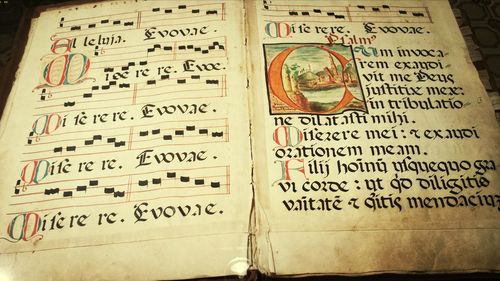 Alleluja. Evovae.
Miserere. Evoe.
Miserere. Evovae.
Miserere. Evovae.
Miserere. Evovae.
Miserere. Evovae.
Psalm9
Cum invoca
rem exaudi
vit me Deus
justitiæ meæ:
in tribulatio
ne dilatasti mihi.
Miserere mei: & exaudi
orationem meam.
Filij hoinū usquequo gra
vi corde: ut qd diligitis
vaītatē & qitis mendaciuz